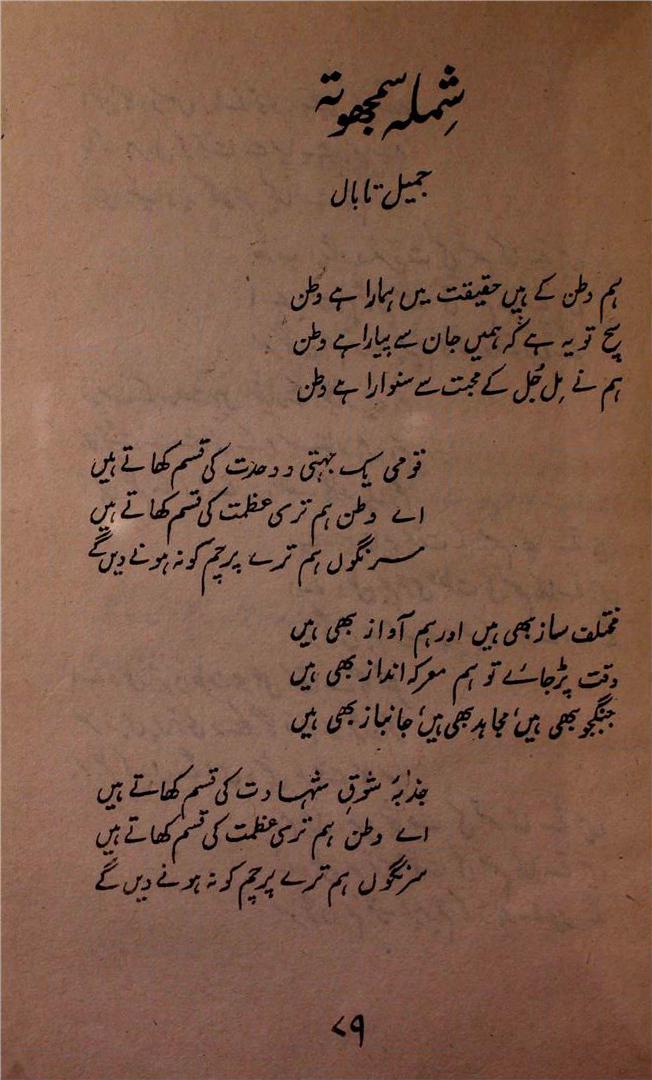 شِملہ سمجھوتہ
جمیل تاباں
ہم وطن کے ہیں حقیقت میں ہمارا ہے وطن
سچ تو یہ ہے کہ ہمیں جان سے پیارا ہے وطن
ہم نے مِل جُل کے محبت سے سنوارا ہے وطن
قومی یک جہتی و وحدت کی قسم کھاتے ہیں
اے وطن ہم تری عظمت کی قسم کھاتے ہیں
سرنگوں ہم ترے پرچم کو نہ ہونے دیں گے
مختلف ساز بھی ہیں اور ہم آواز بھی ہیں
وقت پڑ جائے تو ہم معرکہ انداز بھی ہیں
جنگجو بھی ہیں، مجاہد بھی ہیں، جانباز بھی ہیں
جذبۂ شوقِ شہادت کی قسم کھاتے ہیں
اے وطن ہم تری عظمت کی قسم کھاتے ہیں
سرنگوں ہم ترے پرچم کو نہ ہونے دیں گے
۷۹